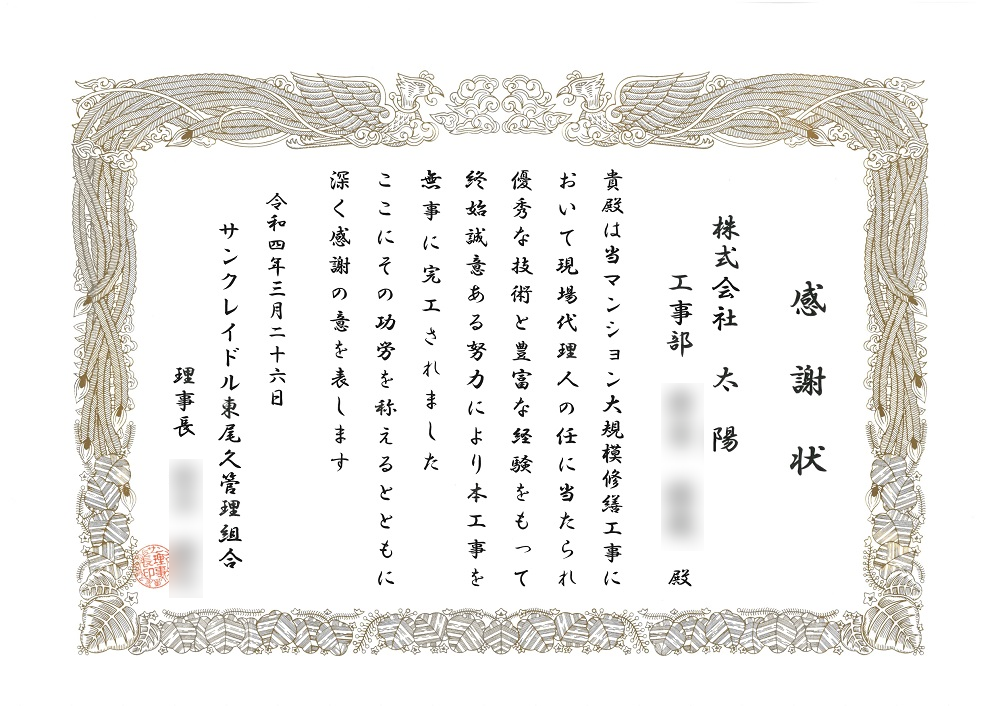 感謝状
株式会社 太陽
工事部 殿
貴殿は当マンション大規模修繕工事に
おいて現場代理人の任に当たられ
優秀な技術と豊富な経験をもって
終始誠意ある努力により本工事を
無事に完工されました
ここにその功労を称えるとともに
深く感謝の意を表します
令和四年三月二十六日
サンクレイドル東尾久管理組合
理事長